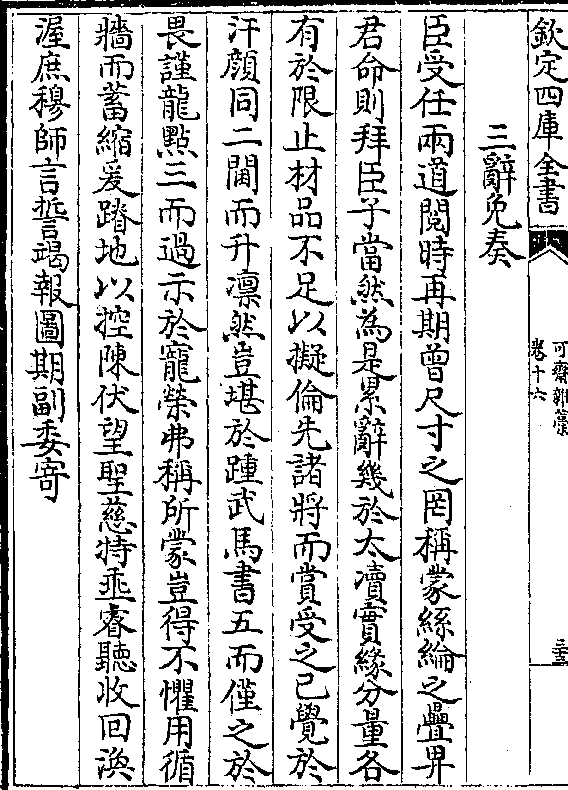 欽定四庫全書
可齋雜藁
卷十六
三辭免奏
臣受任兩道閱時再期曾尺寸之罔稱蒙絲綸之疊畀
君命則拜臣子當然為是累辭幾於太瀆實緣分量各
有於限止材品不足以擬倫先諸將而賞受之已覺於
汗顔同二閫而升凛然豈堪於踵武馬書五而僅之於
畏謹龍㸃三而過示於寵榮弗稱所蒙豈得不懼用循
牆而蓄縮爰蹐地以控陳伏望聖慈特垂睿聽收回渙
渥庶穆師言誓竭報圖期副委寄